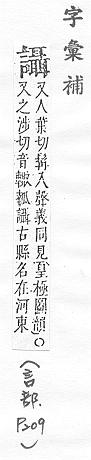 字彙補
讘
又人葉切髥入聲義同見皇極圖韻○
又之涉切音輒瓡讘古縣名在河東
(言部. P209)